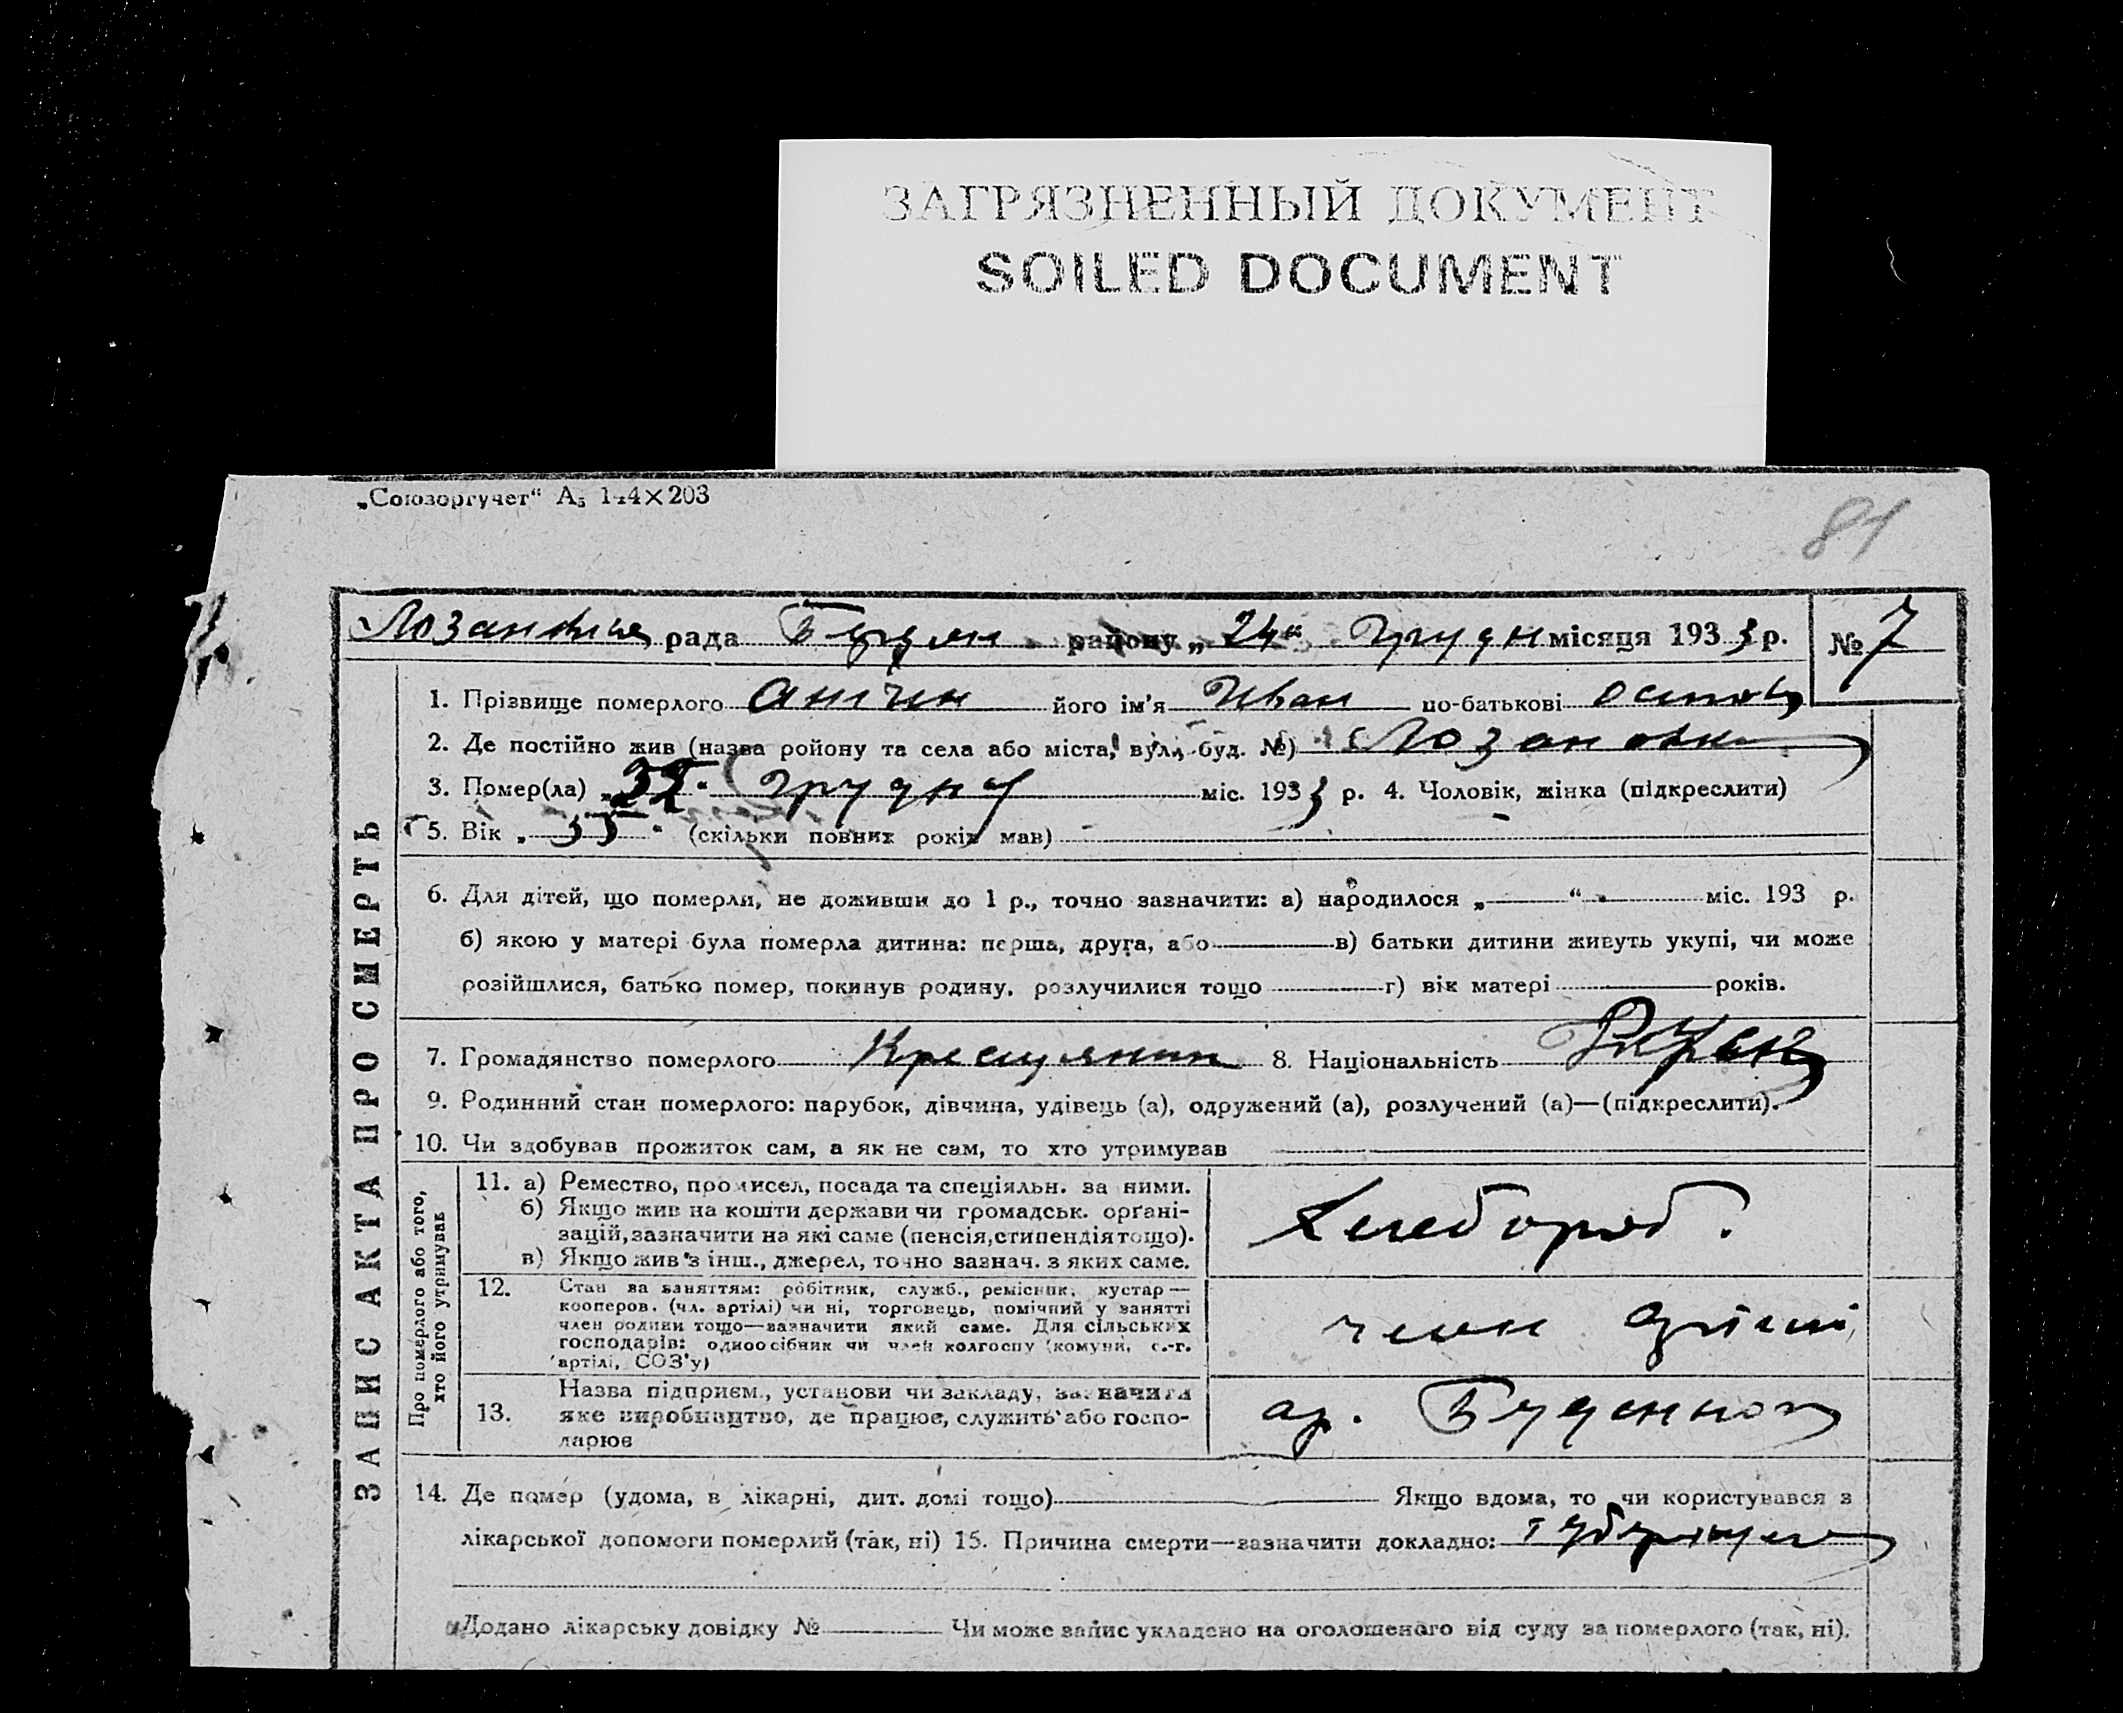 ЗАГРЯЗНЕННЫЙ ДОКУМЕНТ
SOILED DOCUMENT
„Союзоргучет“ А₅ 144×203
81
рада району „24“ грудн місяця 1933 р. № 7
1. Прізвище померлого його ім'я Иван по-батькові
2. Де постійно жив (назва ройону та села або міста, вул., буд. №) с Лозановка
3. Помер(ла) „ “ грудня міс. 1933 р. 4. Чоловік, жінка (підкреслити)
5. Вік „ 55 “ (скільки повних років мав)
6. Для дітей, що померли, не доживши до 1 р., точно зазначити: а) народилося „ “ міс. 193 р.
б) якою у матері була померла дитина: перша, друга, або в) батьки дитини живуть укупі, чи може
розійшлися, батько помер, покинув родину, розлучилися тощо г) вік матері років.
7. Громадянство померлого 8. Національність
9. Родинний стан померлого: парубок, дівчина, удівець (а), одружений (а), розлучений (а)—(підкреслити).
10. Чи здобував прожиток сам, а як не сам, то хто утримував
ЗАПИС АКТА ПРО СМЕРТЬ
Про померлого або того,
хто його утримував
11. а) Ремество, промисел, посада та спеціяльн. за ними.
б) Якщо жив на кошти держави чи громадськ. орґані-
зацій, зазначити на які саме (пенсія, стипендія тощо).
в) Якщо жив з інш., джерел, точно зазнач. з яких саме.
Хлебороб.
12. Стан за заняттям: робітник, служб., ремісник, кустар—
кооперов. (чл. артілі) чи ні, торговець, помічний у занятті
член родини тощо—зазначити який саме. Для сільських
господарів: одноосібник чи член колгоспу (комуни, с.-г.
артілі, СОЗ'у)
член артілі
13. Назва підприєм., установи чи закладу, зазначити
яке виробництво, де працює, служить або госпо-
дарює
ар. Буденного
14. Де помер (удома, в лікарні, дит. домі тощо) Якщо вдома, то чи користувався з
лікарської допомоги померлий (так, ні) 15. Причина смерти—зазначити докладно:
Додано лікарську довідку № Чи може запис укладено на оголошеного від суду за померлого (так, ні).